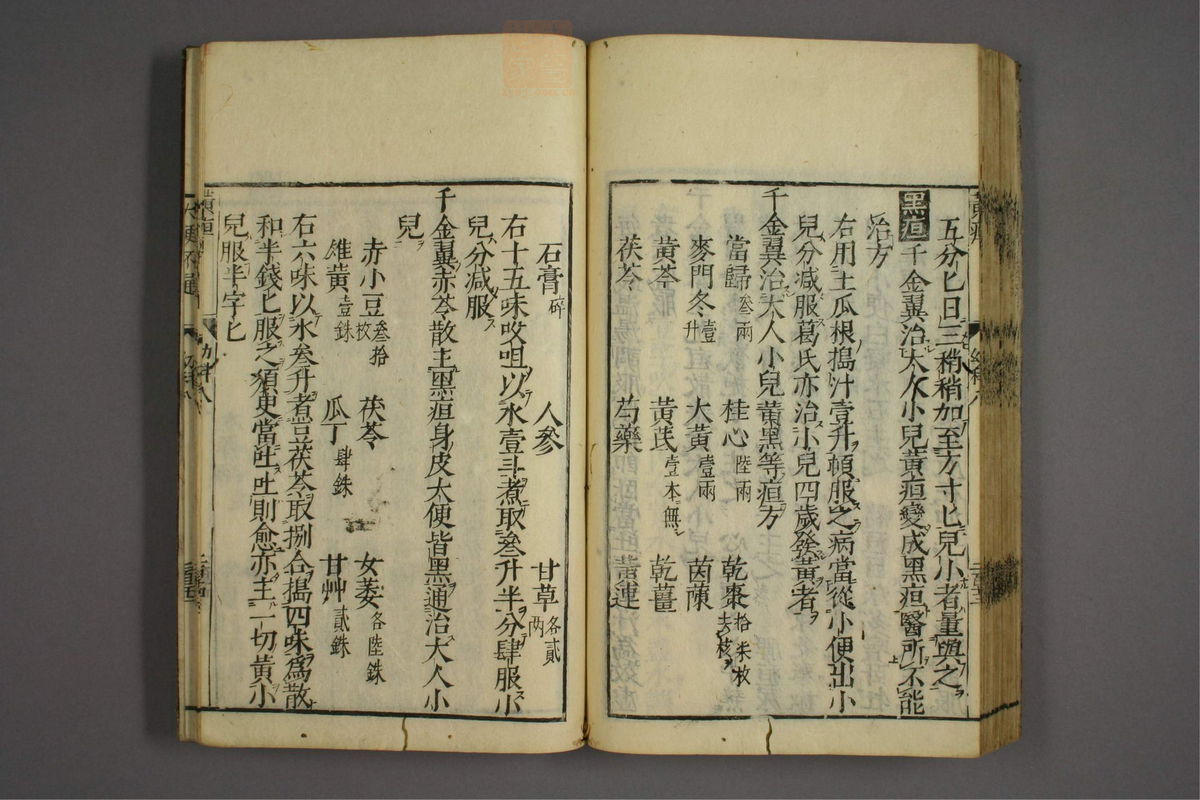 五分匕日三稍稍加至方寸匕兒小者量與之
黑疸千金翼治大人小兒黃疸變成黑疸醫所不能
治方
右用土瓜根搗汁壹升頓服之病當從小便出小
兒分減服葛氏亦治小兒四歲發黃者
千金翼治大人小兒黃黑等疸方
當歸叁兩 桂心陸兩 乾棗拾柒枚去核
麥門冬壹升 大黃壹兩 茵蔯
黃芩 黃茋壹本無 乾薑
茯苓 芍藥 黃連
石膏碎 人參 甘草各貳兩
右十五味㕮咀以水壹斗煮取叁升半分肆服小
兒分減服
千金翼赤苓散主黑疸身皮大便皆黑通治大人小
兒
赤小豆叁拾枚 茯苓 女萎各陸銖
雄黃壹銖 瓜丁肆銖 甘艸貳銖
右六味以水叁升煮豆茯苓取捌合搗四味為散
和半錢匕服之須臾當吐吐則愈亦主一切黃小
兒服半字匕